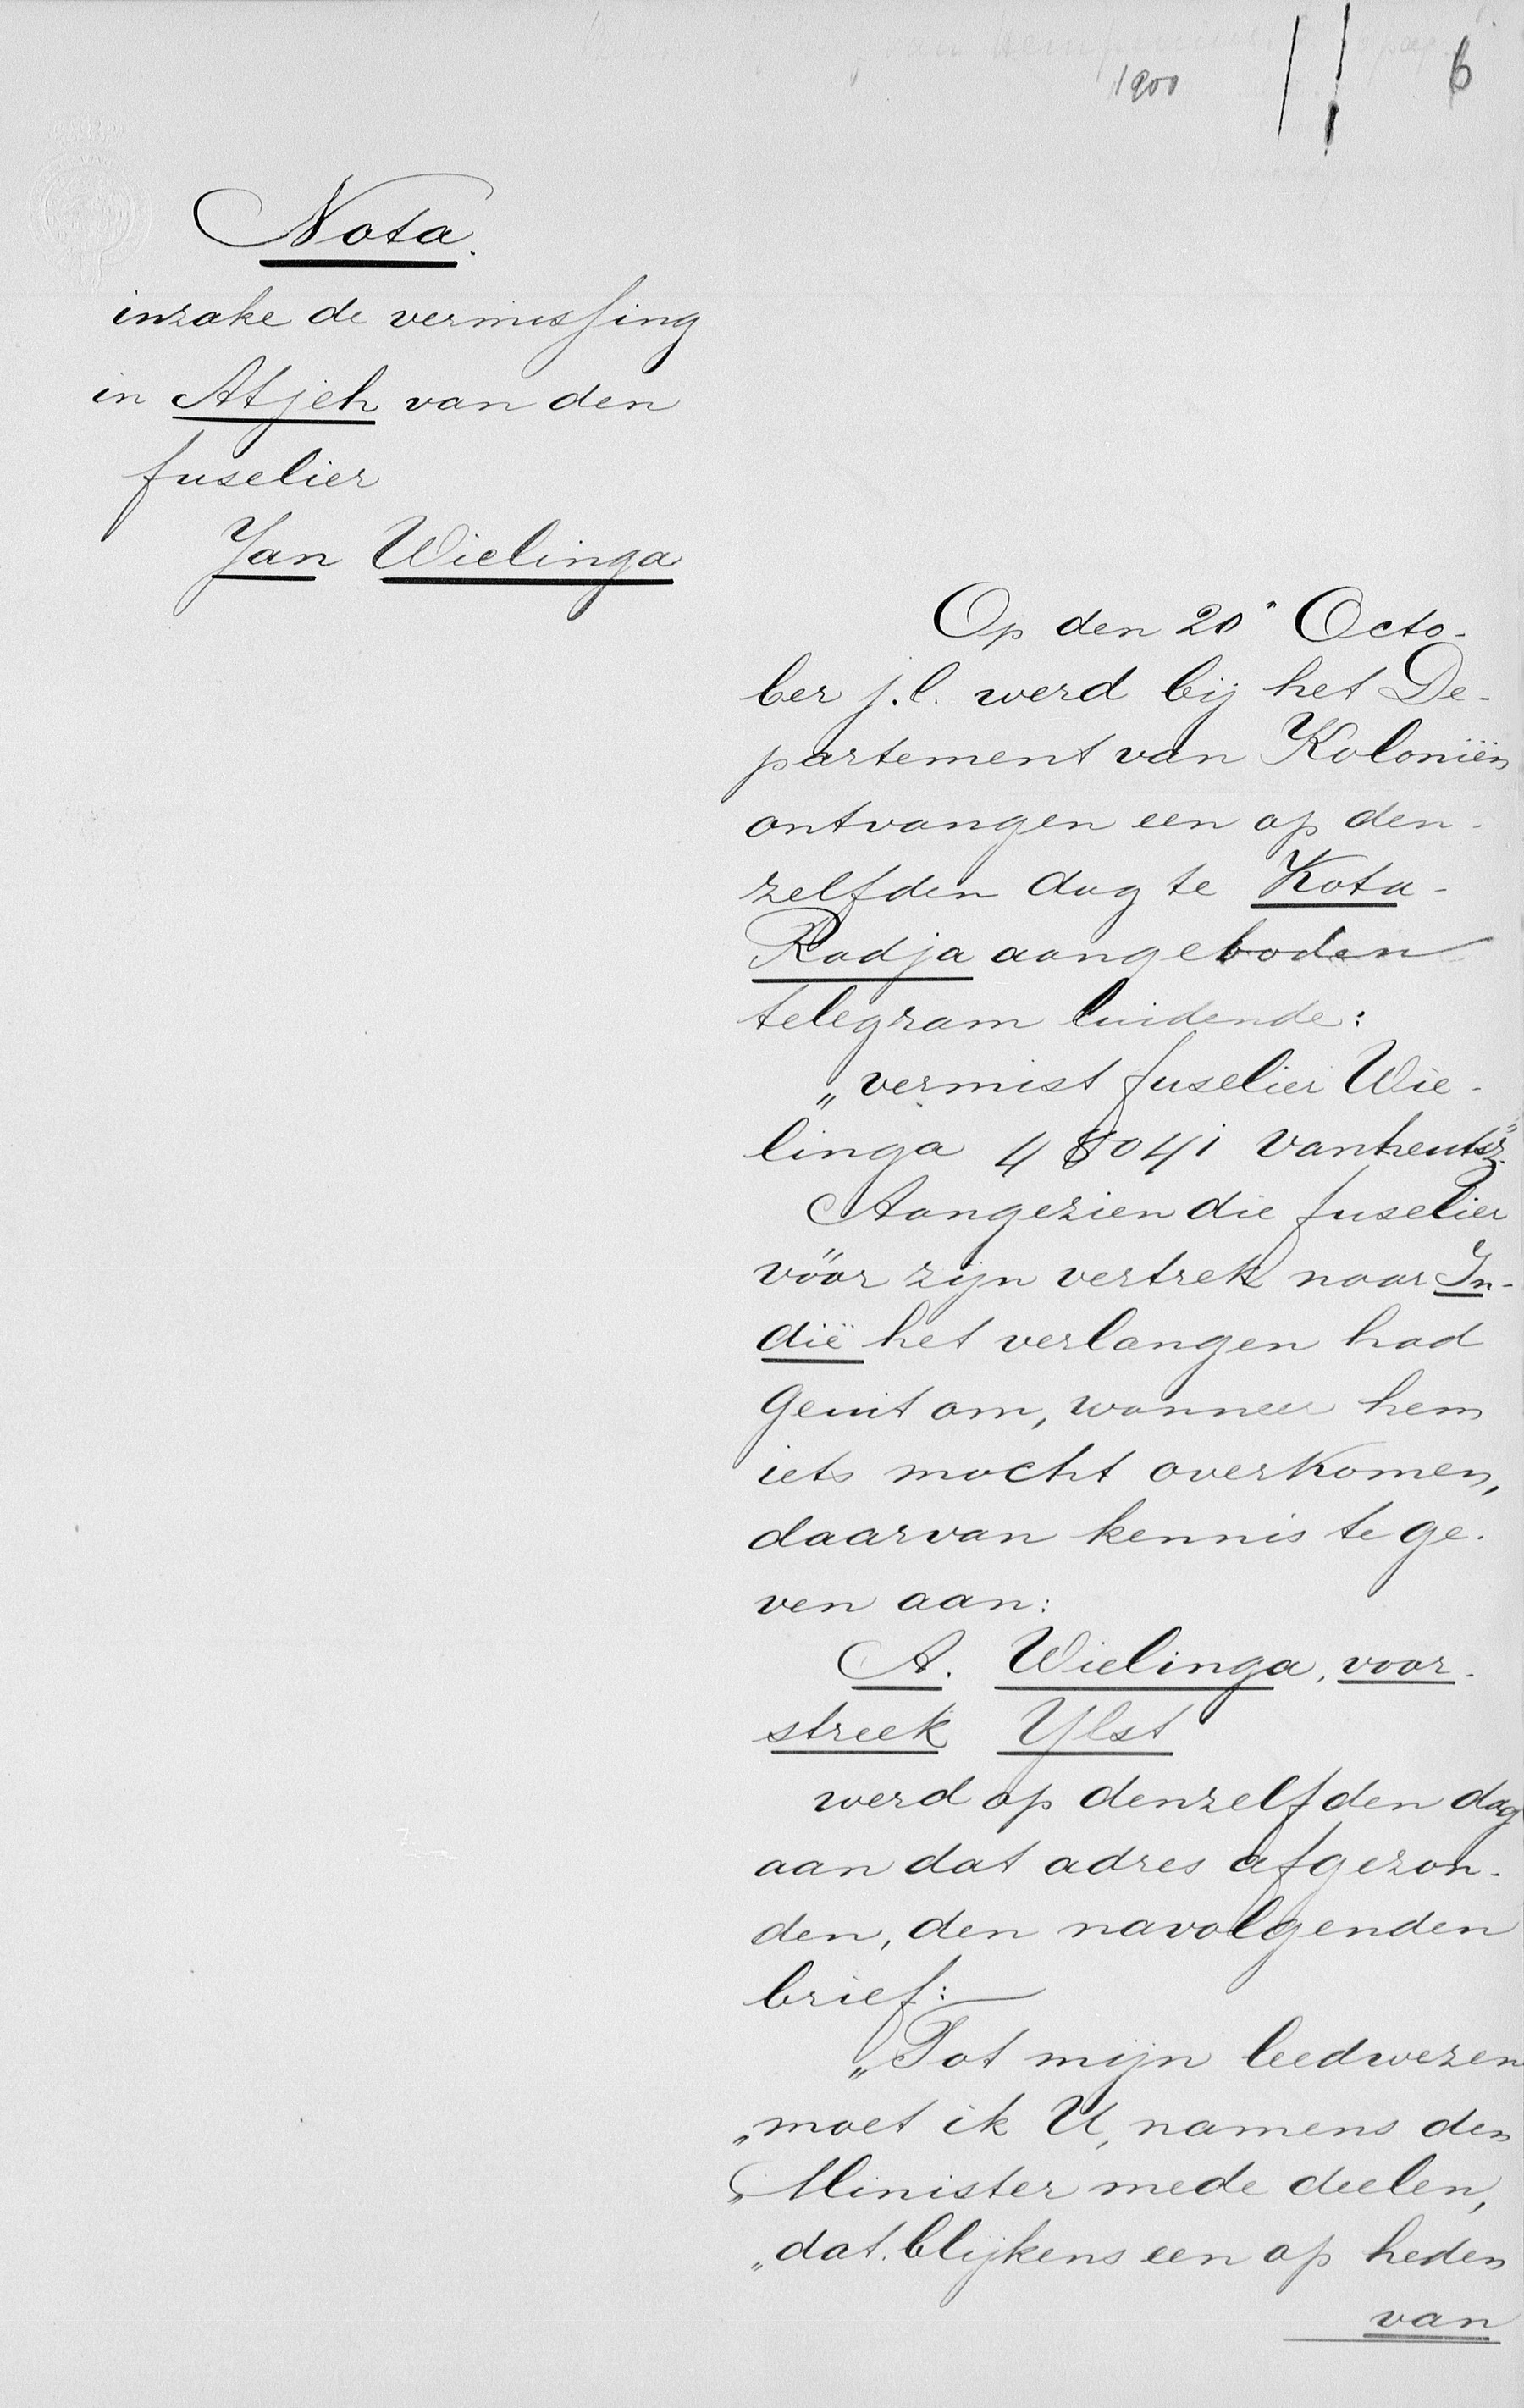 1900
6
Nota.
inzake de vermissing
in Atjeh van den
fuselier
Jan Wielinga
Op den 20n Octo-
ber j.l. werd bij het De-
partement van Koloniën
ontvangen een op den-
zelfden dag te Kota-
Radja aangeboden
telegram luidende:
„vermist fuselier Wie-
linga 48041 vanheutsz."
Aangezien die fuselier
vóór zijn vertrek naar In-
dië het verlangen had
geuit om, wanneer hem
iets mocht overkomen,
daarvan kennis te ge-
ven aan:
A. Wielinga, voor-
streek Ylst
werd op denzelfden dag
aan dat adres afgezon-
den, den navolgenden
brief:
„Tot mijn leedwezen
„moet ik U, namens den
„Minister mede deelen,
„dat blijkens een op heden
van